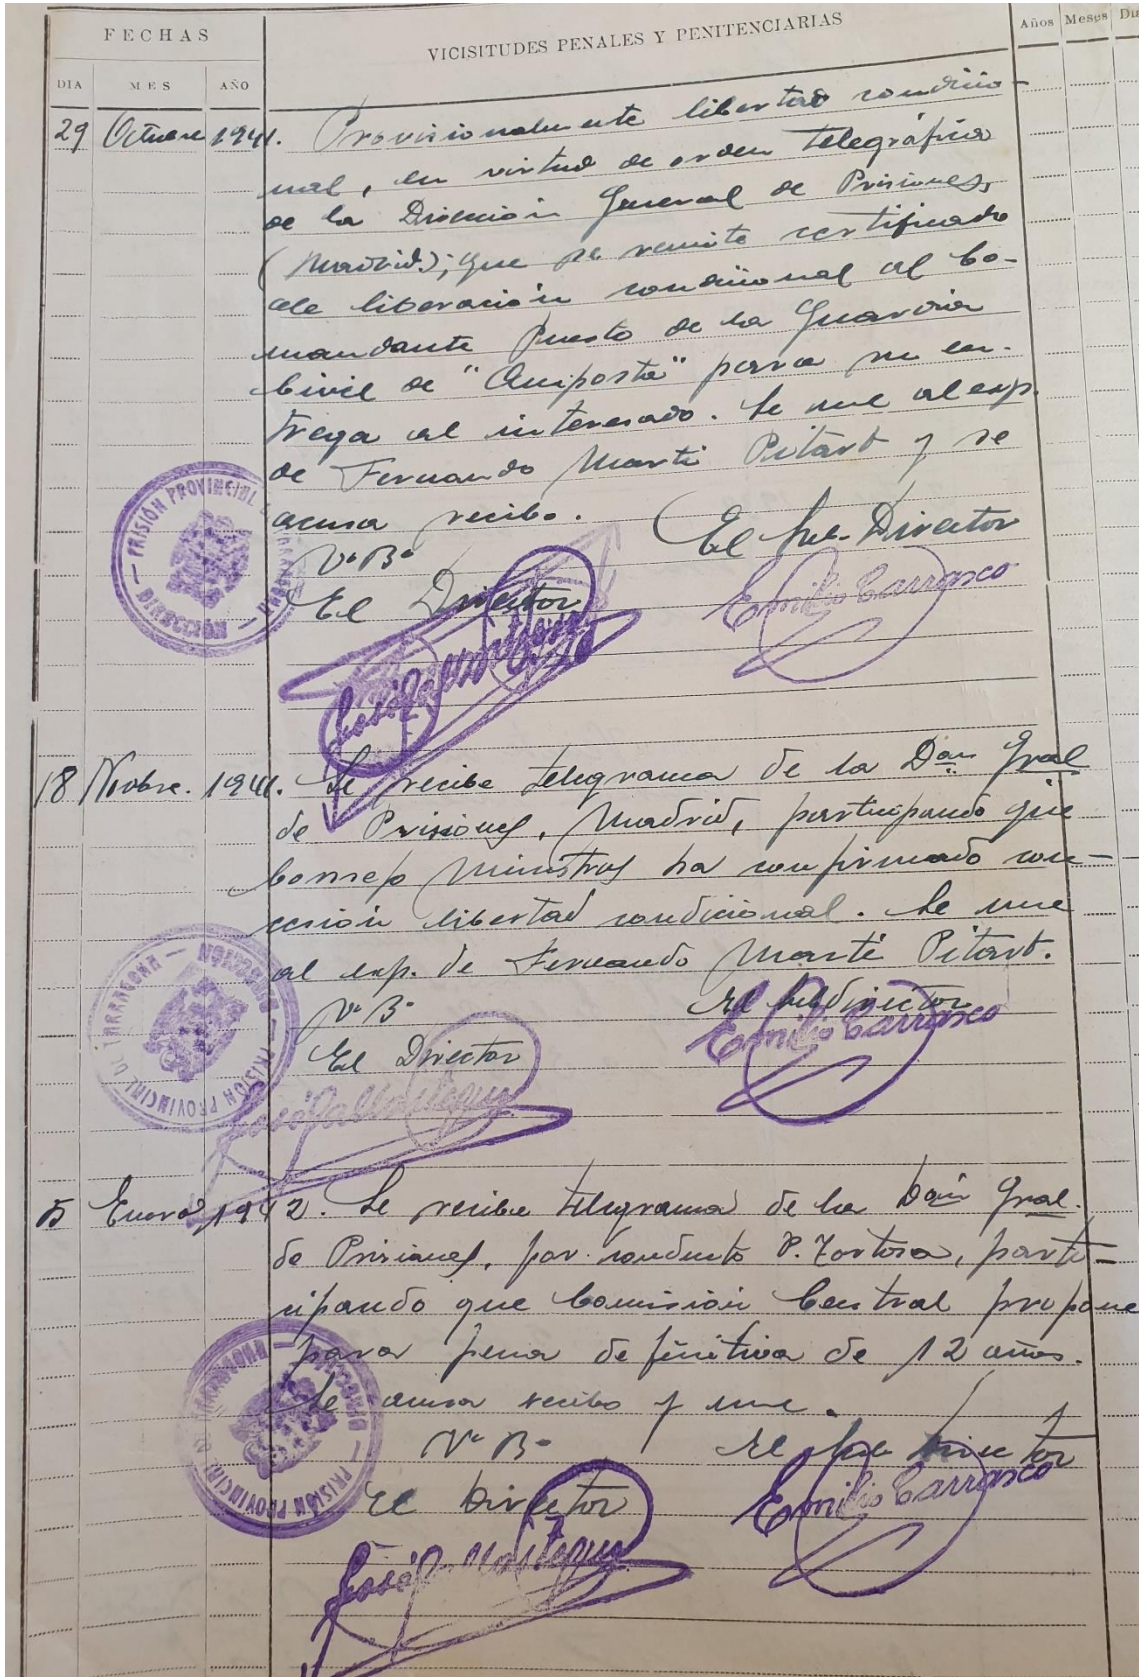 FECHAS
VICISITUDES PENALES Y PENITENCIARIAS
Años Meses
DIA MES AÑO
29 Octubre 1941. Provisionalmente libertad condicio-
nal, en virtud de orden telegráfica
de la Dirección General de Prisiones,
(Madrid.); que se remite certificado
de liberación condicional al Co-
mandante Puesto de la Guardia
Civil de "Amposta" para su en-
trega al interesado. Se une al exp.
de Fernando Marti Pitart y se
acusa recibo.
El Sub-Director
Vº Bº
El Director
Emilio Carrasco
PRISIÓN PROVINCIAL DE TARRAGONA — DIRECCIÓN —
18 Novbre. 1941. Se recibe telegrama de la Don Gral
de Prisiones, Madrid, participando que
Consejo Ministros ha confirmado con-
cesión libertad condicional. Se une
al exp. de Fernando Marti Pitart.
Vº Bº El Subdirector
El Director
Emilio Carrasco
PRISIÓN PROVINCIAL DE TARRAGONA — DIRECCIÓN —
5 Enero 1942. Se recibe telegrama de la Don Gral.
de Prisiones, por conducto P. Tortosa, parti-
cipando que Comisión Central propone
para pena definitiva de 12 años.
Se acusa recibo y une.
Vº Bº El Sub Director
El Director
Emilio Carrasco
PRISIÓN PROVINCIAL DE TARRAGONA — DIRECCIÓN —